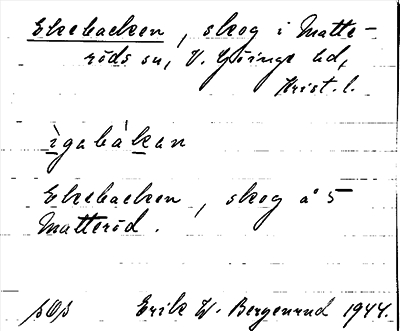 Ekebacken, skog i Matte-
röds sn, V. Göinge hd,
Krist. l.
ìgabákan
Ekebacken, skog å 5
Matteröd.
Erik W. Bergenrud 1944.